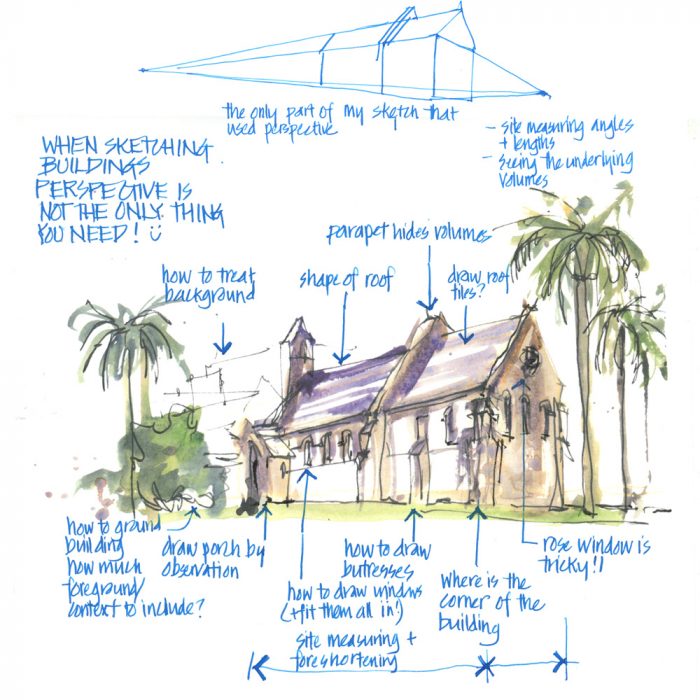 the only part of my sketch that
used perspective
- site measuring angles
+ lengths
- seeing the underlying
volumes
WHEN SKETCHING
BUILDINGS
PERSPECTIVE IS
NOT THE ONLY THING
YOU NEED!
parapet hides volumes
how to treat
background
shape of roof
draw roof
tiles?
how to ground
building
how much
foreground/
context to include?
draw porch by
observation
how to draw windows
(+fit them all in!)
site measuring +
foreshortening
how to draw
butresses
where is the
corner of the
building
rose window is
tricky!!